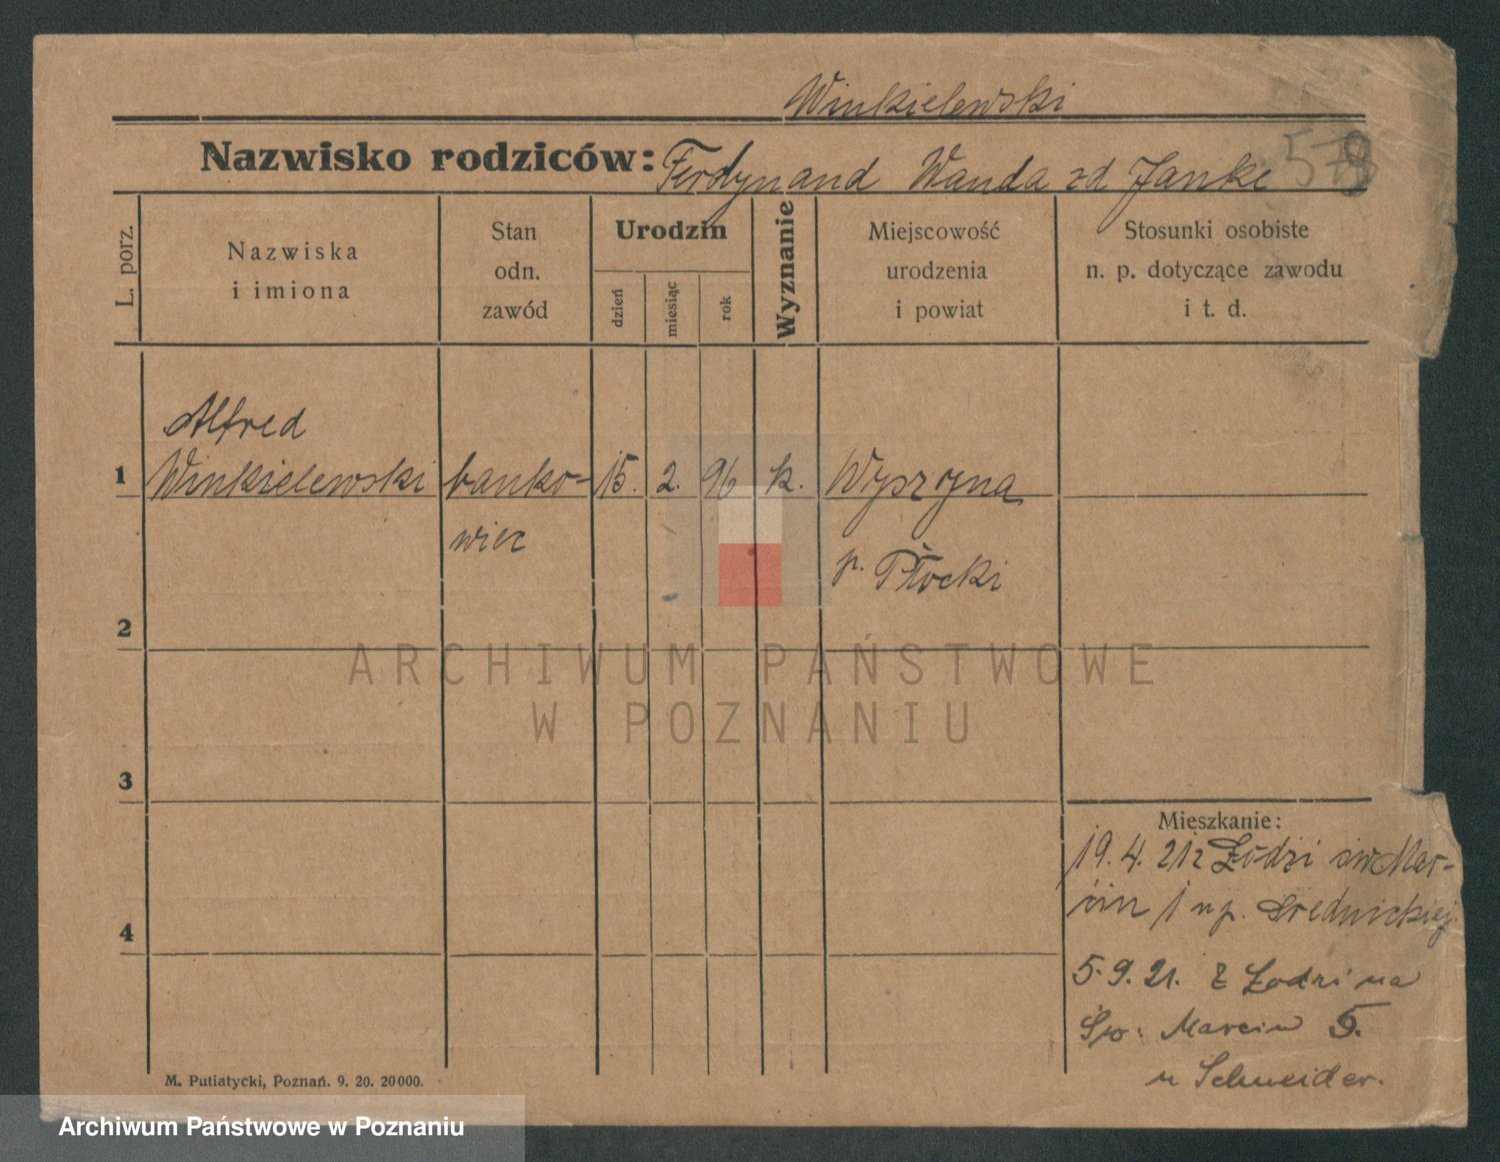 Winkielewski
Nazwisko rodziców: Ferdynand Wanda zd Janke
L. porz.
Nazwiska
i imiona
Stan
odn.
zawód
Urodzin
dzień
miesiąc
rok
Wyznanie
Miejscowość
urodzenia
i powiat
Stosunki osobiste
n. p. dotyczące zawodu
i t. d.
Alfred
1 Winkielewski banko- 15. 2. 96 k. Wyszyna
wiec
p. Płocki
2
ARCHIWUM PAŃSTWOWE
W POZNANIU
3
Mieszkanie:
19. 4. 21 z Łodzi św Mar-
cin 1 u p. Srednickiej
4
5. 9. 21. z Łodzi na
Św: Marcin 5.
u Schneider.
M. Putiatycki, Poznań. 9. 20. 20000.
Archiwum Państwowe w Poznaniu